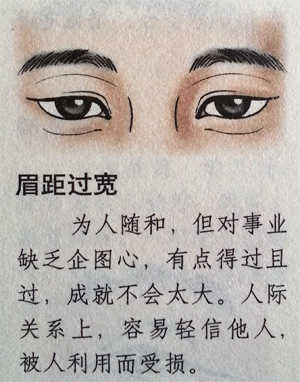 眉距过宽
为人随和，但对事业
缺乏企图心，有点得过且
过，成就不会太大。人际
关系上，容易轻信他人，
被人利用而受损。